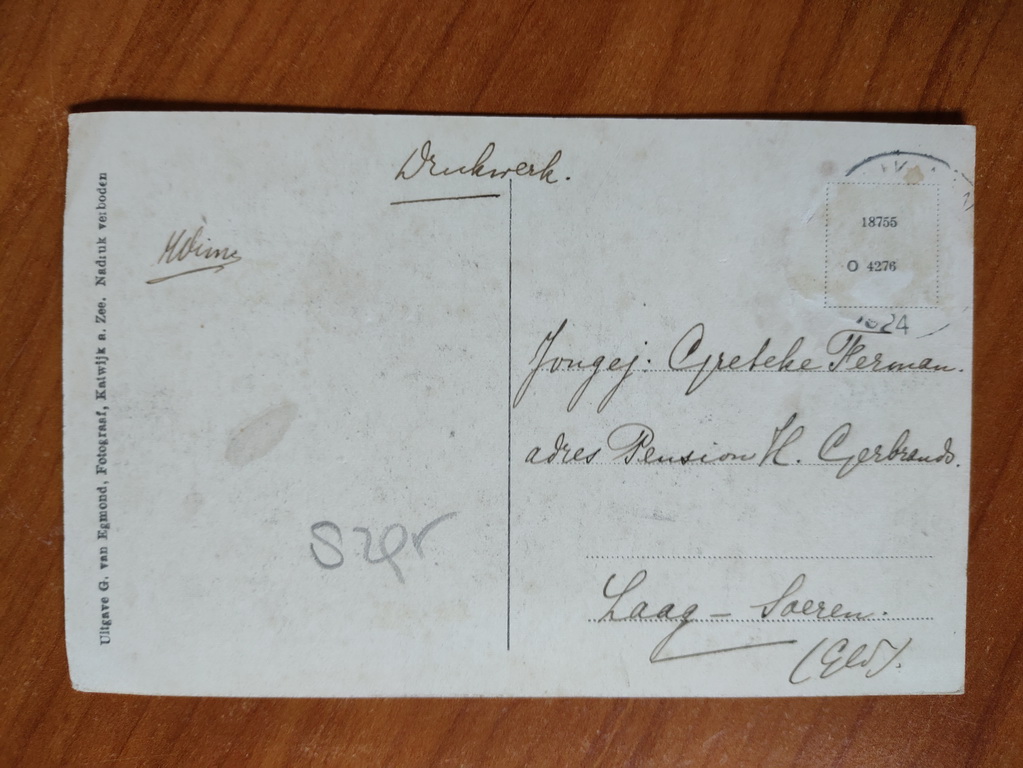 Drukwerk.
Uitgave G. van Egmond, Fotograaf, Katwijk a. Zee. Nadruk verboden
18755
O 4276
1924
Jongej. Gretehe Herman.
adres Pension H. Gerbrands.
Laag - Soeren.
(Gld).